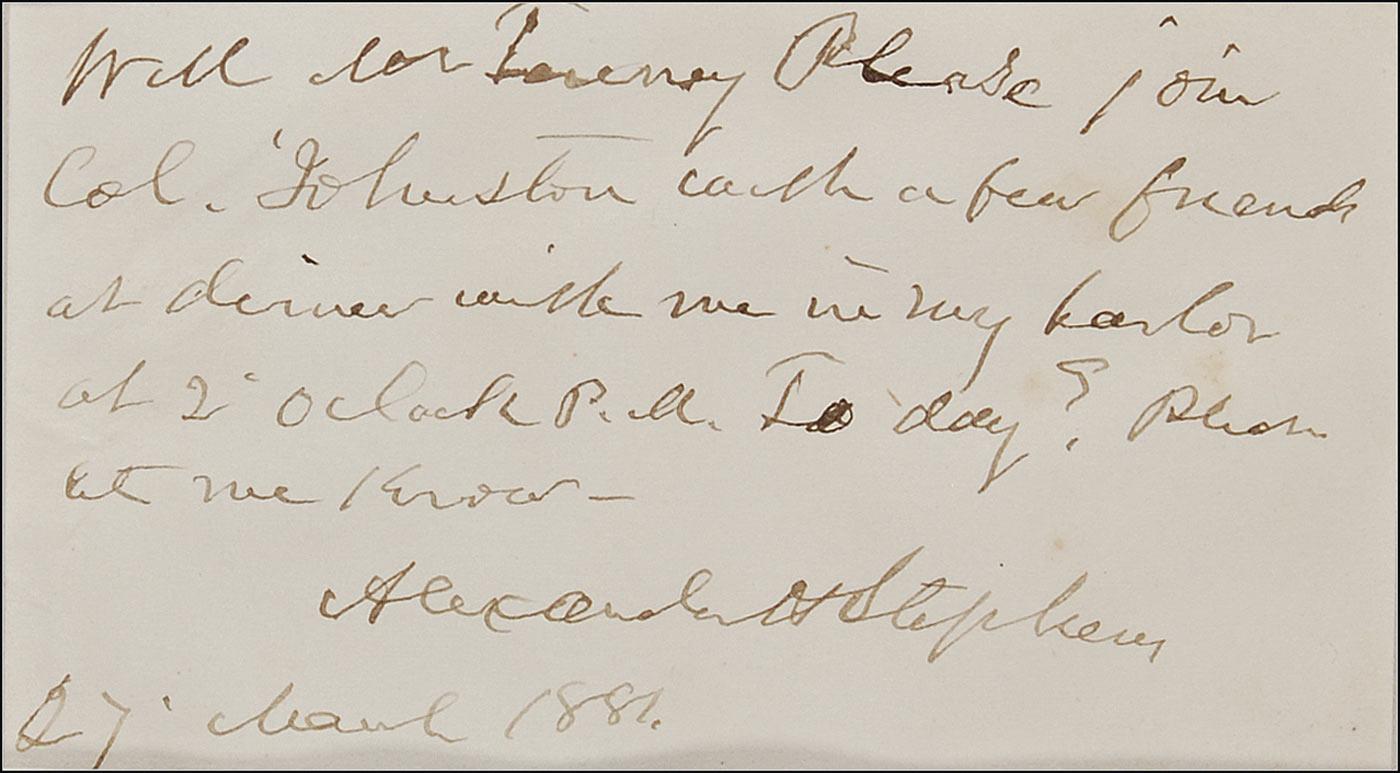 Will Mr Please join
Col. Johnston with a few friends
at dinner with me in my parlor
at 2 Oclock P.M. To day? Please
let me know –
Alexander H Stephens
27 March 1881.